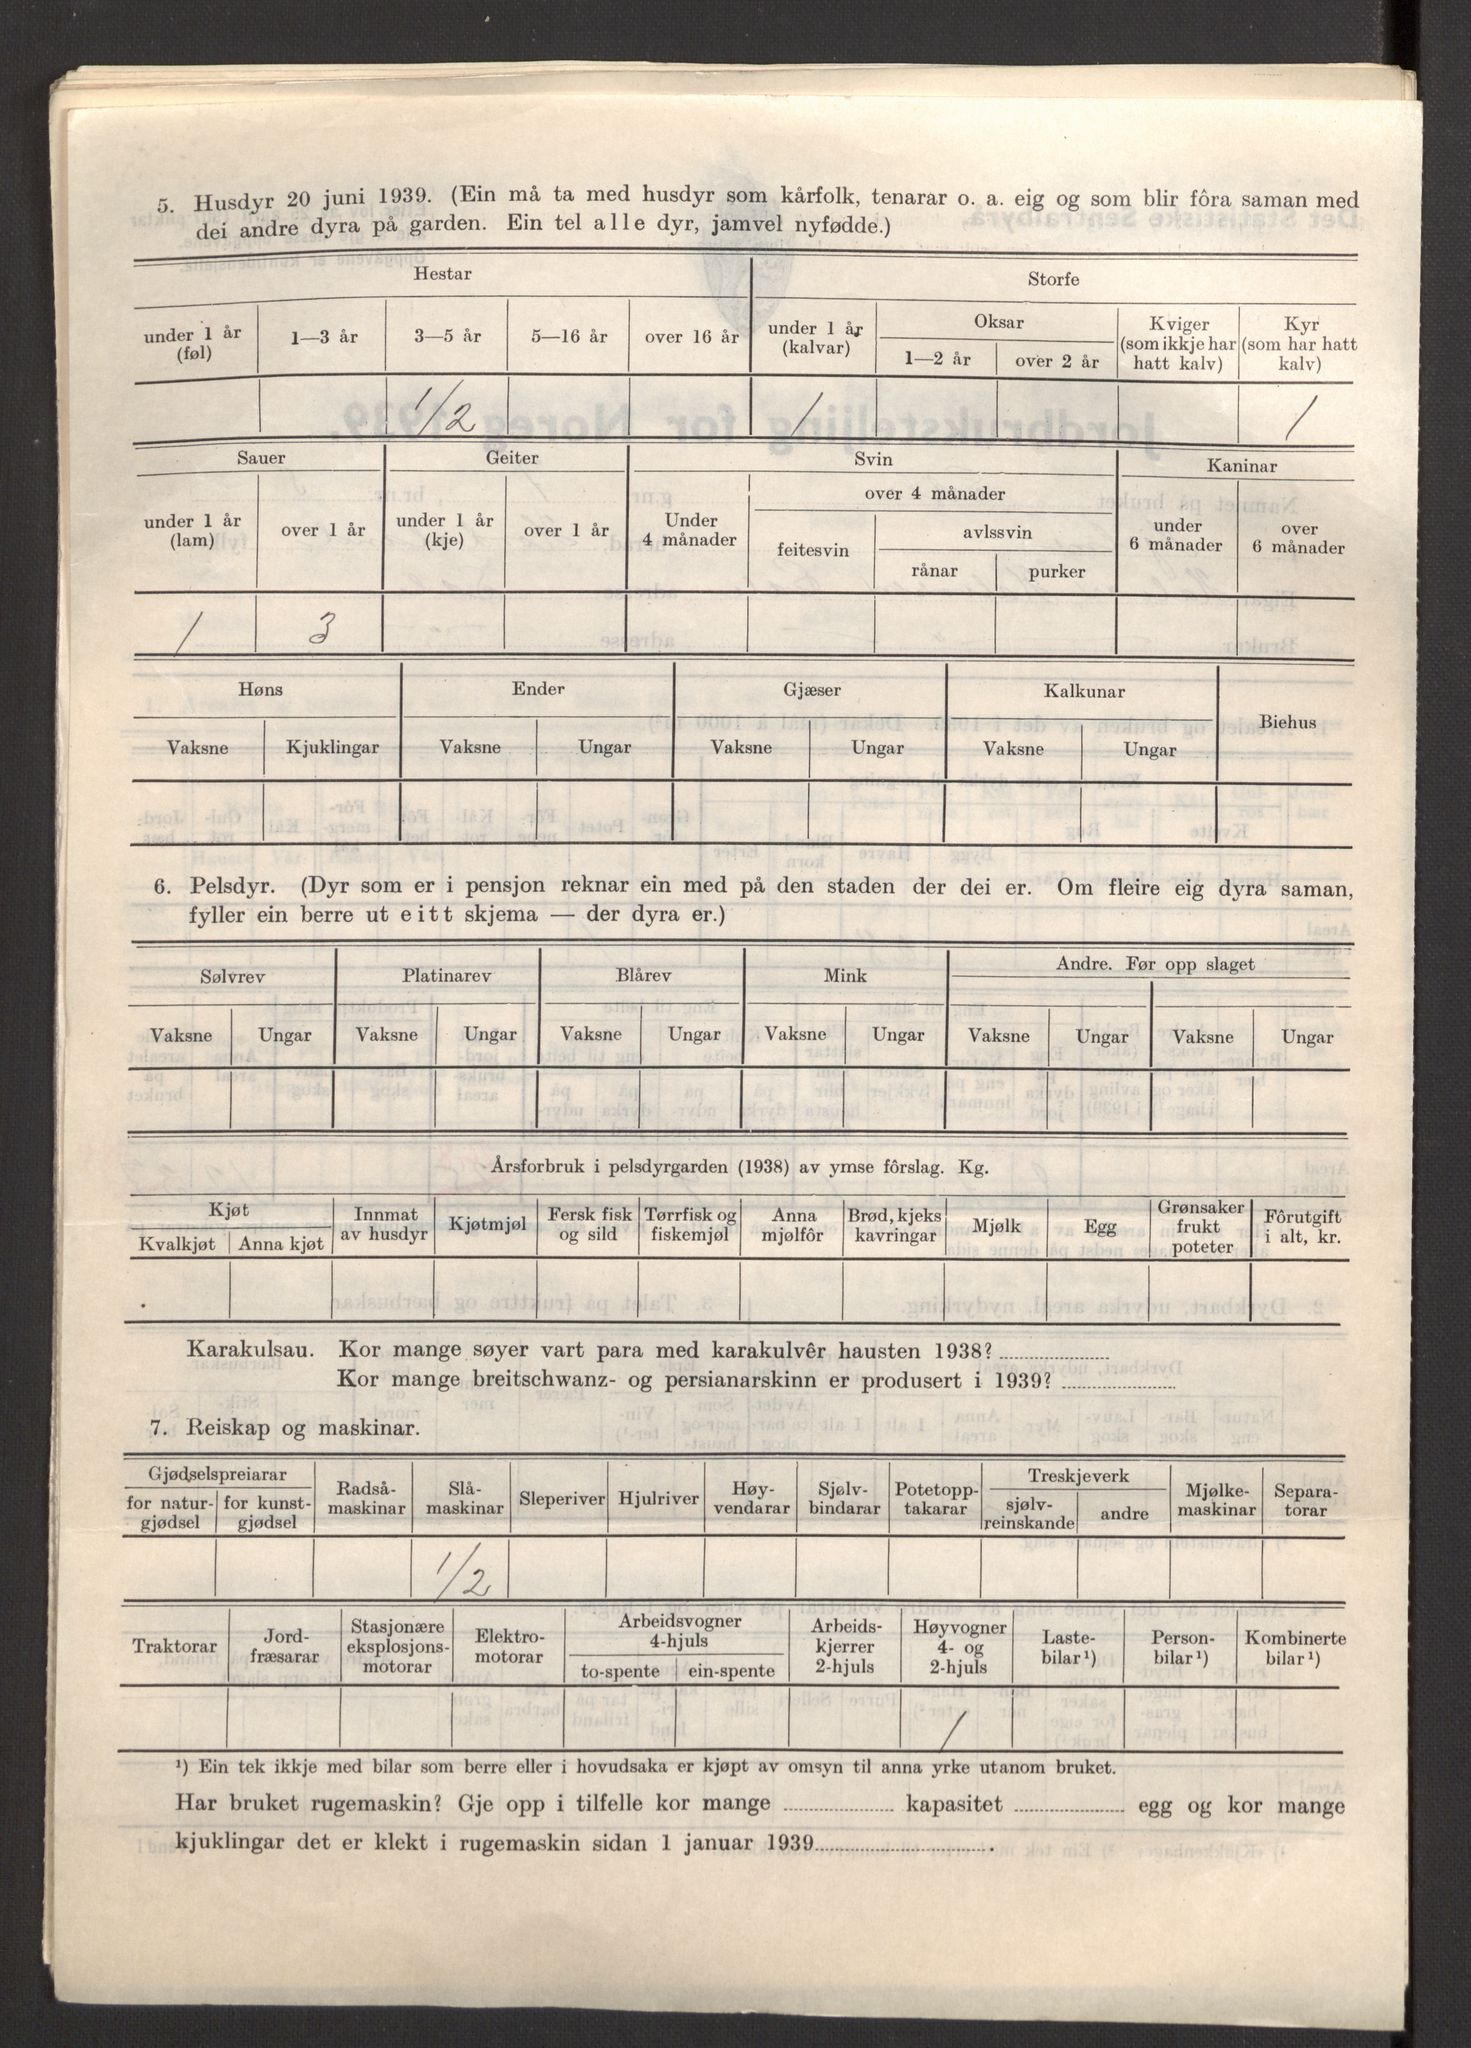 5. Husdyr 20 juni 1939. (Ein må ta med husdyr som kårfolk, tenarar o. a. eig og som blir fôra saman med
dei andre dyra på garden. Ein tel alle dyr, jamvel nyfødde.)
Hestar Storfe
under 1 år (føl) 1—3 år 3—5 år 5—16 år over 16 år under 1 år (kalvar) Oksar 1—2 år over 2 år Kviger (som ikkje har hatt kalv) Kyr (som har hatt kalv)
1/2 1 1
Sauer Geiter Svin Kaninar
under 1 år (lam) over 1 år under 1 år (kje) over 1 år Under 4 månader over 4 månader feitesvin avlssvin rånar purker under 6 månader over 6 månader
1 3
Høns Ender Gjæser Kalkunar Biehus
Vaksne Kjuklingar Vaksne Ungar Vaksne Ungar Vaksne Ungar
6. Pelsdyr. (Dyr som er i pensjon reknar ein med på den staden der dei er. Om fleire eig dyra saman,
fyller ein berre ut eitt skjema — der dyra er.)
Sølvrev Platinarev Blårev Mink Andre. Før opp slaget
Vaksne Ungar Vaksne Ungar Vaksne Ungar Vaksne Ungar Vaksne Ungar Vaksne Ungar
Årsforbruk i pelsdyrgarden (1938) av ymse fôrslag. Kg.
Kjøt Kvalkjøt Anna kjøt Innmat av husdyr Kjøtmjøl Fersk fisk og sild Tørrfisk og fiskemjøl Anna mjølfôr Brød, kjeks kavringar Mjølk Egg Grønsaker frukt poteter Fôrutgift i alt, kr.
Karakulsau. Kor mange søyer vart para med karakulvêr hausten 1938?
Kor mange breitschwanz- og persianarskinn er produsert i 1939?
7. Reiskap og maskinar.
Gjødselspreiarar for naturgjødsel for kunstgjødsel Radsåmaskinar Slåmaskinar Sleperiver Hjulriver Høyvendarar Sjølvbindarar Potetopptakarar Treskjeverk sjølvreinskande andre Mjølkemaskinar Separatorar
1/2
Traktorar Jordfræsarar Stasjonære eksplosjonsmotorar Elektromotorar Arbeidsvogner 4-hjuls to-spente ein-spente Arbeidskjerrer 2-hjuls Høyvogner 4- og 2-hjuls Lastebilar¹) Personbilar¹) Kombinerte bilar¹)
1
¹) Ein tek ikkje med bilar som berre eller i hovudsaka er kjøpt av omsyn til anna yrke utanom bruket.
Har bruket rugemaskin? Gje opp i tilfelle kor mange kapasitet egg og kor mange
kjuklingar det er klekt i rugemaskin sidan 1 januar 1939.